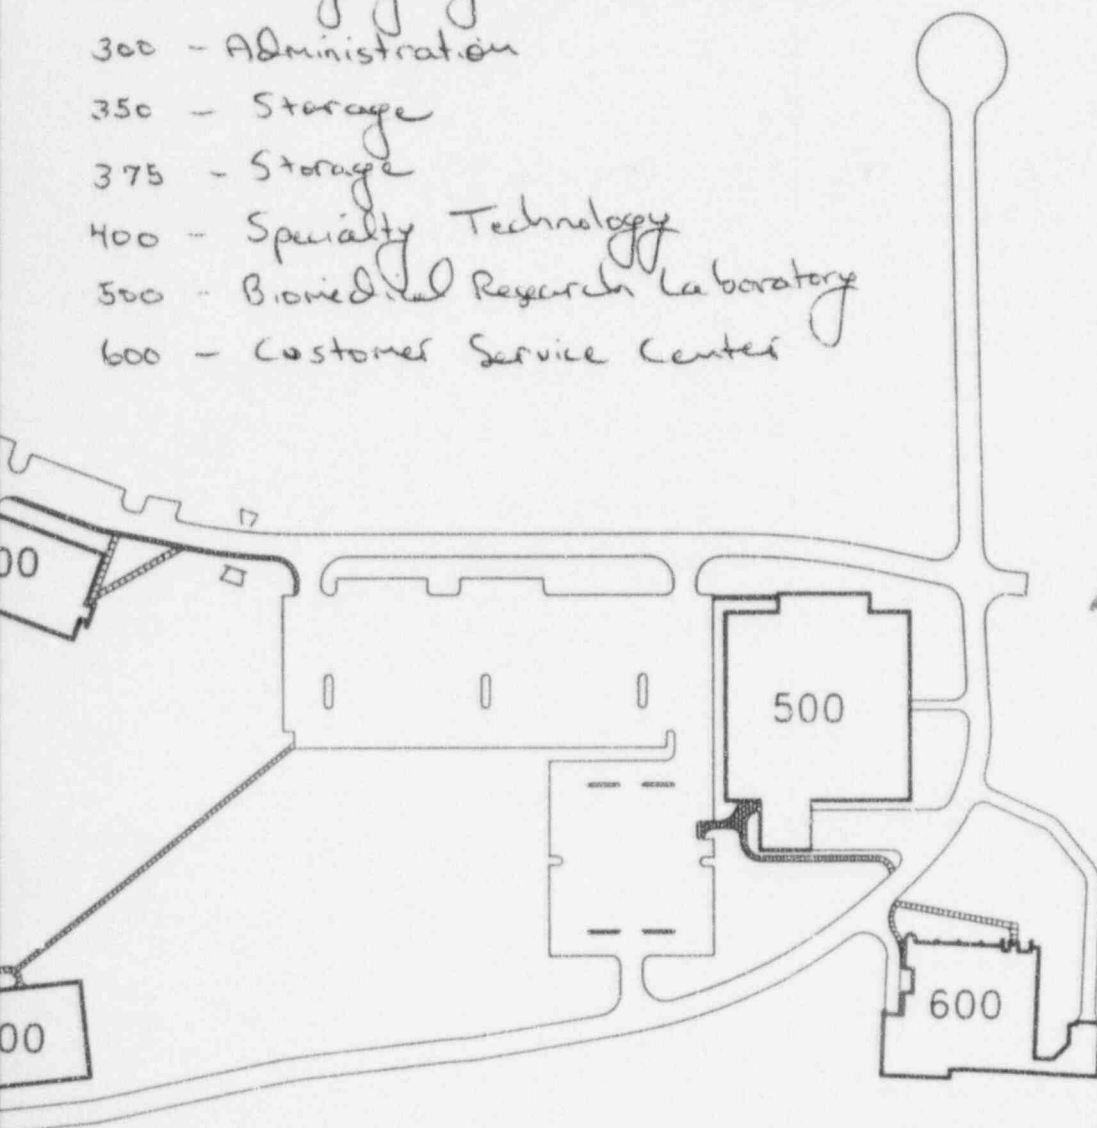 300 - Administration
350 - Storage
375 - Storage
400 - Specialty Technology
500 - Biomedical Research Laboratory
600 - Customer Service Center
00
500
600
00